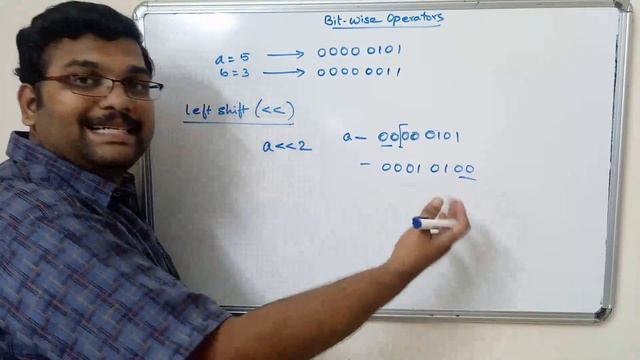 Bit-wise Operators
a = 5 → 0000 0101
b = 3 → 0000 0011
Left shift (<<)
a<<2 a- 00[00 0101
- 0001 0100